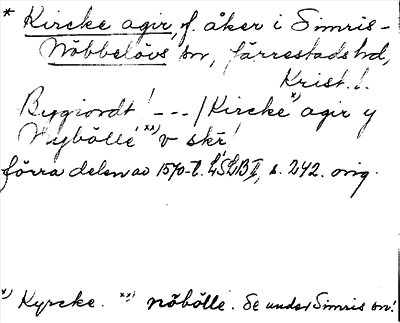 * Kircke agir, f. åker i Simris-
Nöbbelövs sn, Järrestads hd,
Krist. l.
Byggiordt! --- / Kircke x) agir y
Nybölle xx) v skr!
förra delen av 1570-t. LSLB II, s. 242. orig.
x) Kyrcke. xx) nöbölle. Se under Simris sn!